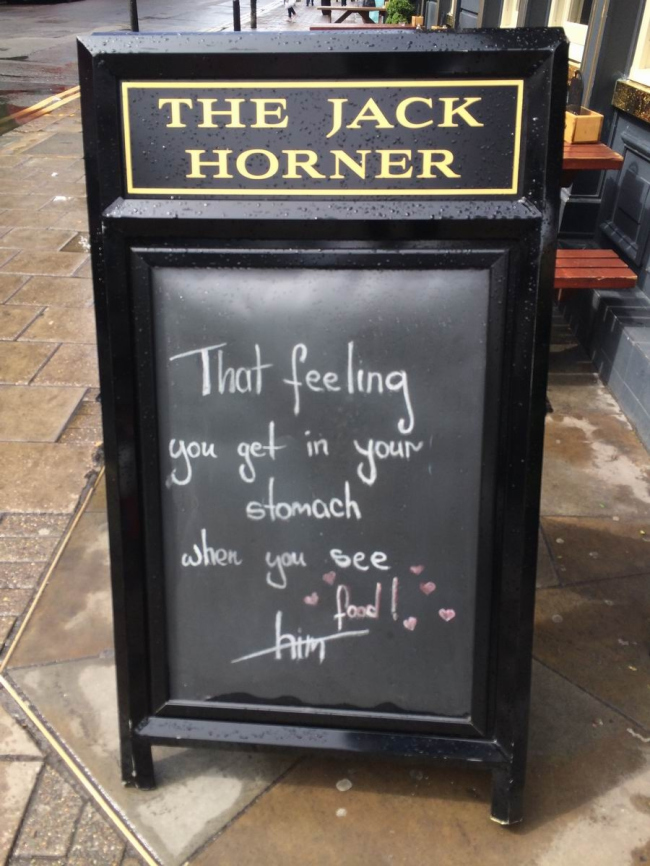 THE JACK
HORNER
That feeling
you get in your
stomach
when you see
food!
him